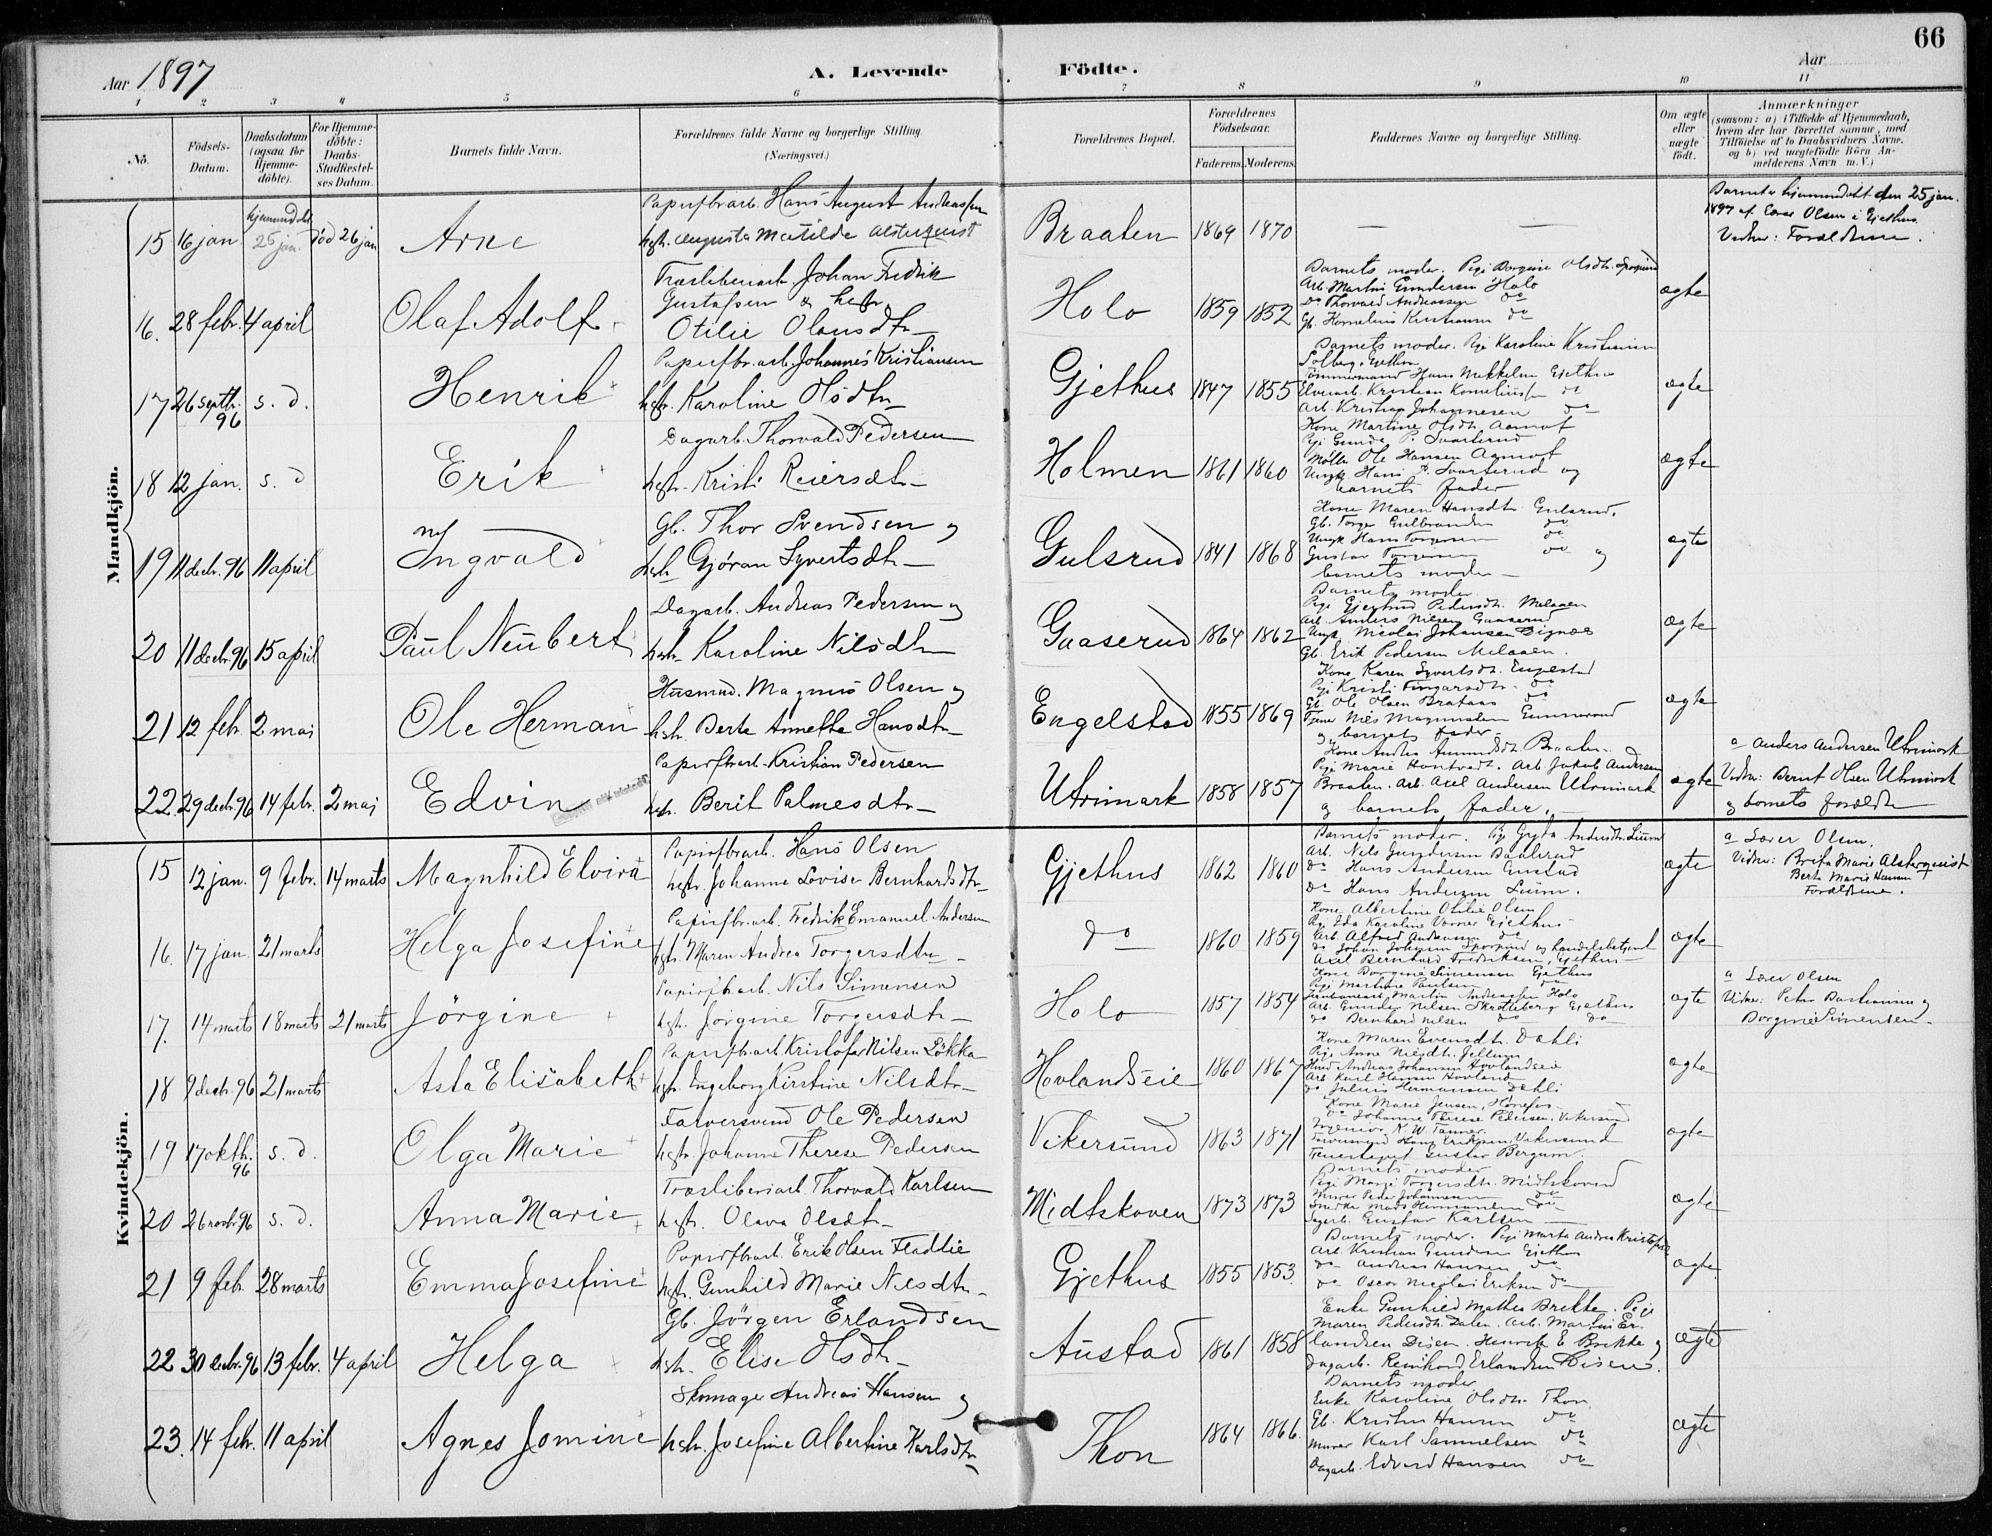 66
Aar 1897
A. Levende Födte.
Aar
1 2 3 4 5 6 7 8 9 10 11
No.
Födsels-Datum.
Daabsdatum (ogsaa for Hjemme-döbte).
For Hjemme-döbte: Daabs-Stadfæstel-ses Datum.
Barnets fulde Navn.
Forældrenes fulde Navne og borgerlige Stilling. (Næringsvei.)
Forældrenes Bopæl.
Forældrenes Födselsaar.
Faderens. Moderens.
Faddernes Navne og borgerlige Stilling.
Om ægte eller uægte födt.
Anmærkninger (saasom: a) i Tilfælde af Hjemmedaab, hvem der har forrettet samme, med Tilföielse af to Daabsvidners Navne, og b) ved uægtefödte Börn An-melderens Navn m. V.)
Mandkjön.
15 16 jan. hjemmedøbt 25 jan. død 26 jan Arne Papirfbr.arb. Hans August Andreassen
hstr. Augusta Matilde Alsterqvist Braaten 1869 1870 — — Barnet hjemmedøbt den 25 jan. 1897 af Lærer Olsen i Gjethus. Vidner: Forældrene.
16. 28 febr. 4 april Olaf Adolf Træsliberiarb. Johan Fredrik
Gustafsen & hstr.
Otilie Olausdtr. Holo 1859 1852 Barnets moder. Pige Borgine Olsdtr.
Arb. Martin Gundersen Holo
Do Thorvald Andreassen do
Gb. Kornelius Kristiansen do ægte
17 26 septbr. 96 s. d. Henrik Papirfbr.arb. Johannes Kristiansen
hstr. Karoline Olsdtr. Gjethus 1847 1855 Barnets moder. Pige Karoline Kristiansen
Solberg, Gjethus
Tømmermand Hans Mikkelsen Gjethus
Arb. Kristian Korneliussen do
Arb. Kristian Johannesen do ægte
18 12 jan. s. d Erik Dagarb. Thorvald Pedersen
hstr. Kristi Reiersdtr. Holmen 1861 1860 Kone Martine Olsdtr. Aamot
Pige Gunda P. Svarterud
Møller Ole Hansen Aamot
Ungk. Hans P. Svarterud og
barnets fader ægte
19 11 decbr. 96 11 april Ingvald Gb. Thor Svendsen og
hstr. Gjøran Syvertsdtr. Gulsrud 1841 1868 Kone Maren Hansdtr. Gulsrud.
Gb. Torger Gulbrandsen do
Ungk. Hans Torgersen do
Gustav Torgersen do og
barnets moder ægte
20 11 decbr. 96 15 april Paul Neubert Dagarb. Andreas Pedersen og
hstr. Karoline Nilsdtr. Gaaserud 1864 1862 Barnets moder
Pige Gjertrud Pedersdtr. Melaaen
Arb. Anders Nilsen Gaaserud
Ungk. Nicolai Johansen Bignæs
Gb. Erik Pedersen Melaaen. ægte
21 12 febr. 2 mai Ole Herman Husmd. Magnus Olsen og
hstr. Berte Annette Hansdtr. Engelstad 1855 1869 Kone Karen Syvertsdtr. Engestad
Pige Kristi Fingarsdtr. do
Gb. Ole Olsen Brataas do
Tjener Nils Magnussen
og barnets fader. ægte
22. 29 decbr. 96 14 febr. 2 mai Edvin Papirfbr.arb. Kristian Pedersen
hstr. Berit Palmesdtr. Utvimark 1858 1857 Kone Andrea Braaten.
Pige Marie Arb. Jakob Andersen
Braaten. Arb. Axel Andersen Utvimark
og barnets fader. ægte a Anders Andersen Utvimark
Vidner: Bernt Olsen Utvimark
og barnets forældre
Kvindekjön.
15 12 jan. 9 febr. 14 marts Magnhild Elvira Papirfbr.arb. Hans Olsen
hstr. Johanne Lovise Bernhardsdtr. Gjethus 1862 1860 Barnets moder. Pige Gryta Andersdtr.
Arb. Nils Gundersen
do Hans Andersen
do Hans Andersen ægte a Lærer Olsen.
Vidner: Brita Marie Alsterqvist
Berte Marie Hansen
Forældrene.
16. 17 jan. 21 marts Helga Josefine Papirfbr.arb. Fredrik Emanuel Andersen
hstr. Maren Andrea Torgersdtr. do 1860 1859 Kone Albertine Otilie Olsen
Pige Ida Karoline Werner Gjethus
Arb. Alfred Andreassen do
do Johan Johansen og handelsbetjent
Axel Bernhard Fredriksen, Gjethus ægte
17. 14 marts 18 marts 21 marts Jörgine Papirfbr.arb. Nils Simensen
hstr. Jörgine Torgersdtr. Holo 1857 1854 Kone Borgine Simensen Gjethus
Pige Martine Paulsen do
Martin Andreassen Holo
Arb. Gunder Nilsen Skretteberg Gjethus
do Bernhard Nilsen do do ægte a Lærer Olsen
Vidner: Peter Bastiansen og
Borgine Simensen
18 9 decbr. 96 21 marts Asta Elisabeth Papirfbr.arb. Kristofer Nilsen Løkka
hstr. Ingeborg Kirstine Nilsdtr. Hovlandseie 1860 1867 Kone Maren Evensdtr. Dahli
Pige Anne Nilsdtr.
Husmd. Andreas Johansen Hovlandseie
Arb. Karl Hansen Hovland
do Julius Hermansen Dahli ægte
19 17 oktbr. 96 s. d. Olga Marie Farversvend Ole Pedersen
hstr. Johanne Therese Pedersen Vikersund 1863 1871 Kone Marie Jensen, Hønefos
do Johanne Therese Pedersen, Vikersund
K. W. Tanner.
Farversvend Hans Eriksen Vikersund
Gustav Bergum. ægte
20 26 novbr. 96 s. d. Anna Marie Træsliberiarb. Thorvald Karlsen
hstr. Olava Olsdtr. Midtskoven 1873 1873 Barnets moder
Pige Marie Torgersdtr. Midtskoven
Murer Peder Johannesen do
Snedker Mads Hermansen do
Gustav Karlsen ægte
21 9 febr. 28 marts Emma Josefine Papirfbr.arb. Erik Olsen Fladlie
hstr. Gunhild Marie Nilsdtr. Gjethus 1855 1853. Barnets moder. Pige Marta Andrea Kristofersdtr.
Arb. Kristian Gundersen Gjethus
do Andreas Hansen do
do Oscar Nicolai Eriksen do ægte.
22 30 decbr. 96 13 febr. 4 april Helga Gb. Jörgen Erlandsen
hstr. Elise Olsdtr. Austad 1861 1858 Enke Gunhild Mathea Brekke. Pige
Maren Pedersdtr. Dalen. Arb. Martin Er-
landsen Disen. Henrik E Brekke og
Dagarb. Reinhard Erlandsen Disen. ægte
23. 14 febr. 11 april Agnes Jomine Skomager Andreas Hansen og
hstr. Josefine Albertine Karlsdtr. Thon 1864 1866. Barnets moder
Enke Karoline Olsdtr. Thon
Gb. Kristen Hansen do
Murer Karl Samuelsen do
Dagarb. Edvard Hansen do ægte